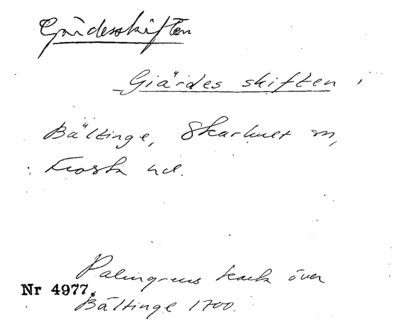 Gärdesskiften
Giärdes skiften
Bältinge, Skarhult sn,
Frosta hd.
Palmgrens karta över
Nr 4977.
Bältinge 1700.